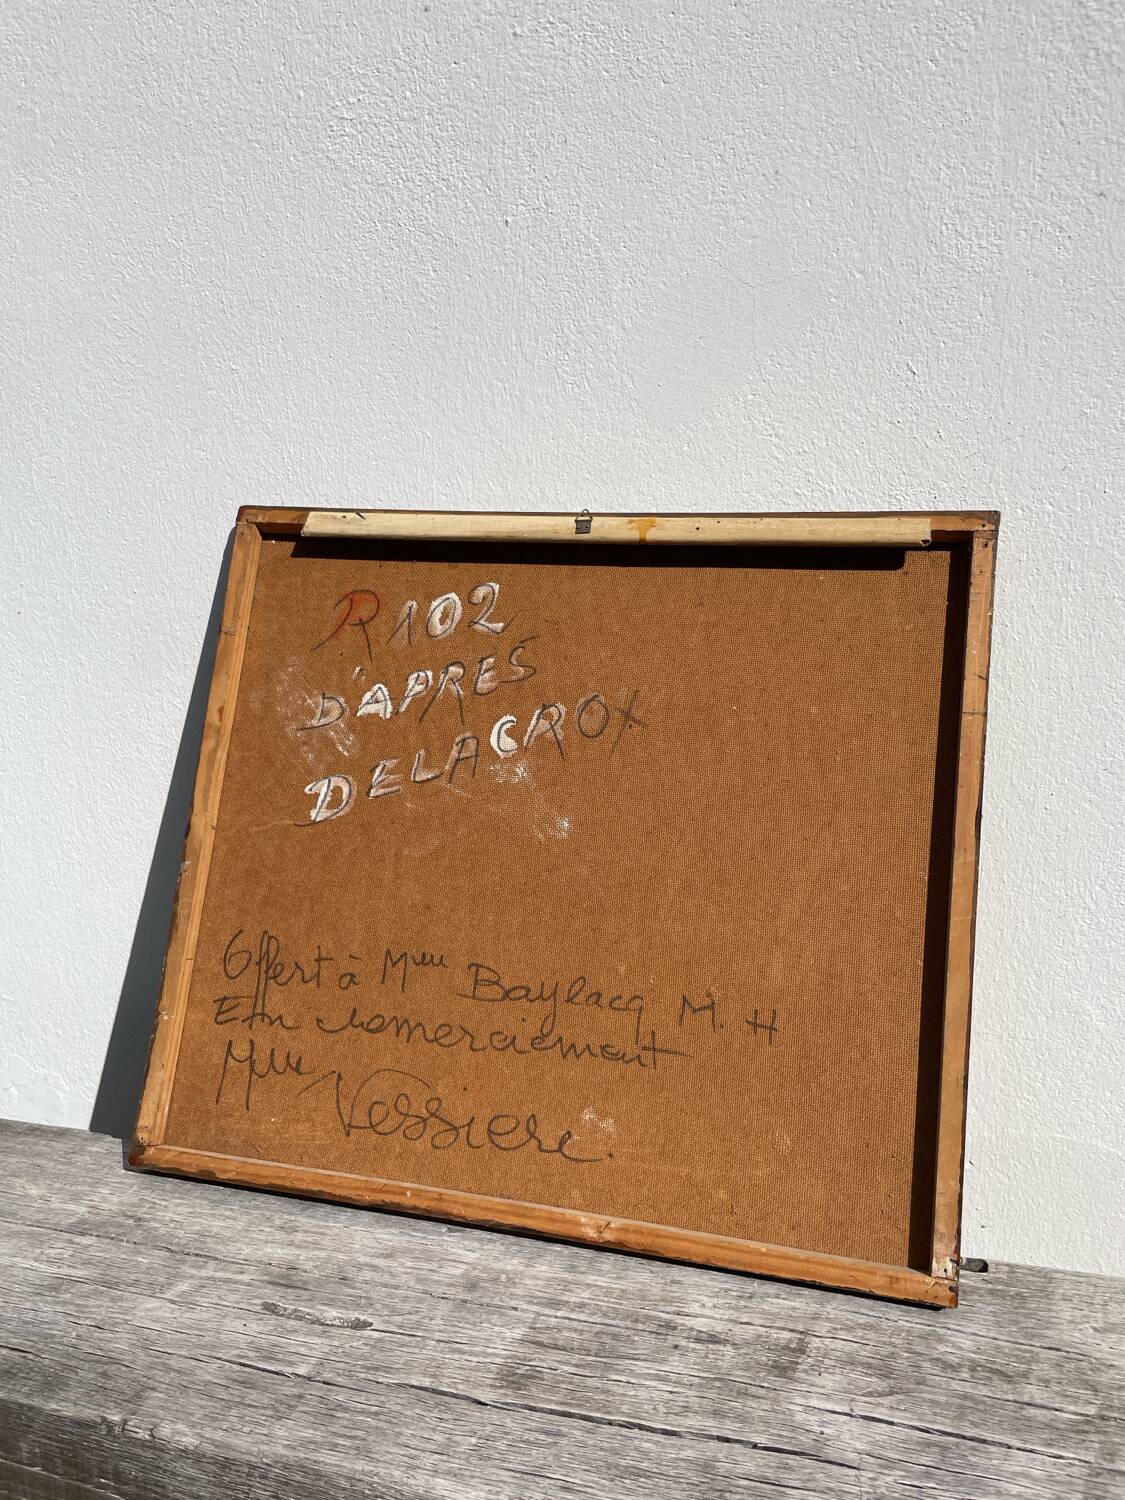 R 102
D'APRES
DELACROX
Offert à Mme Baylacq M. H
En remerciement
Mme Vessiere.